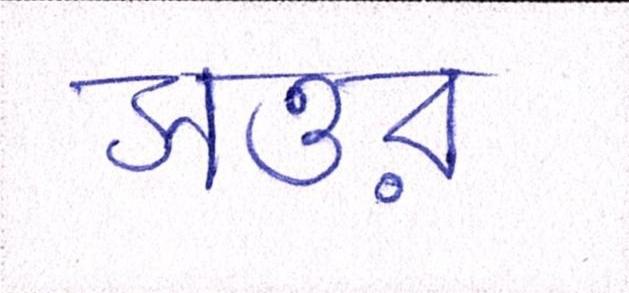 সত্তর